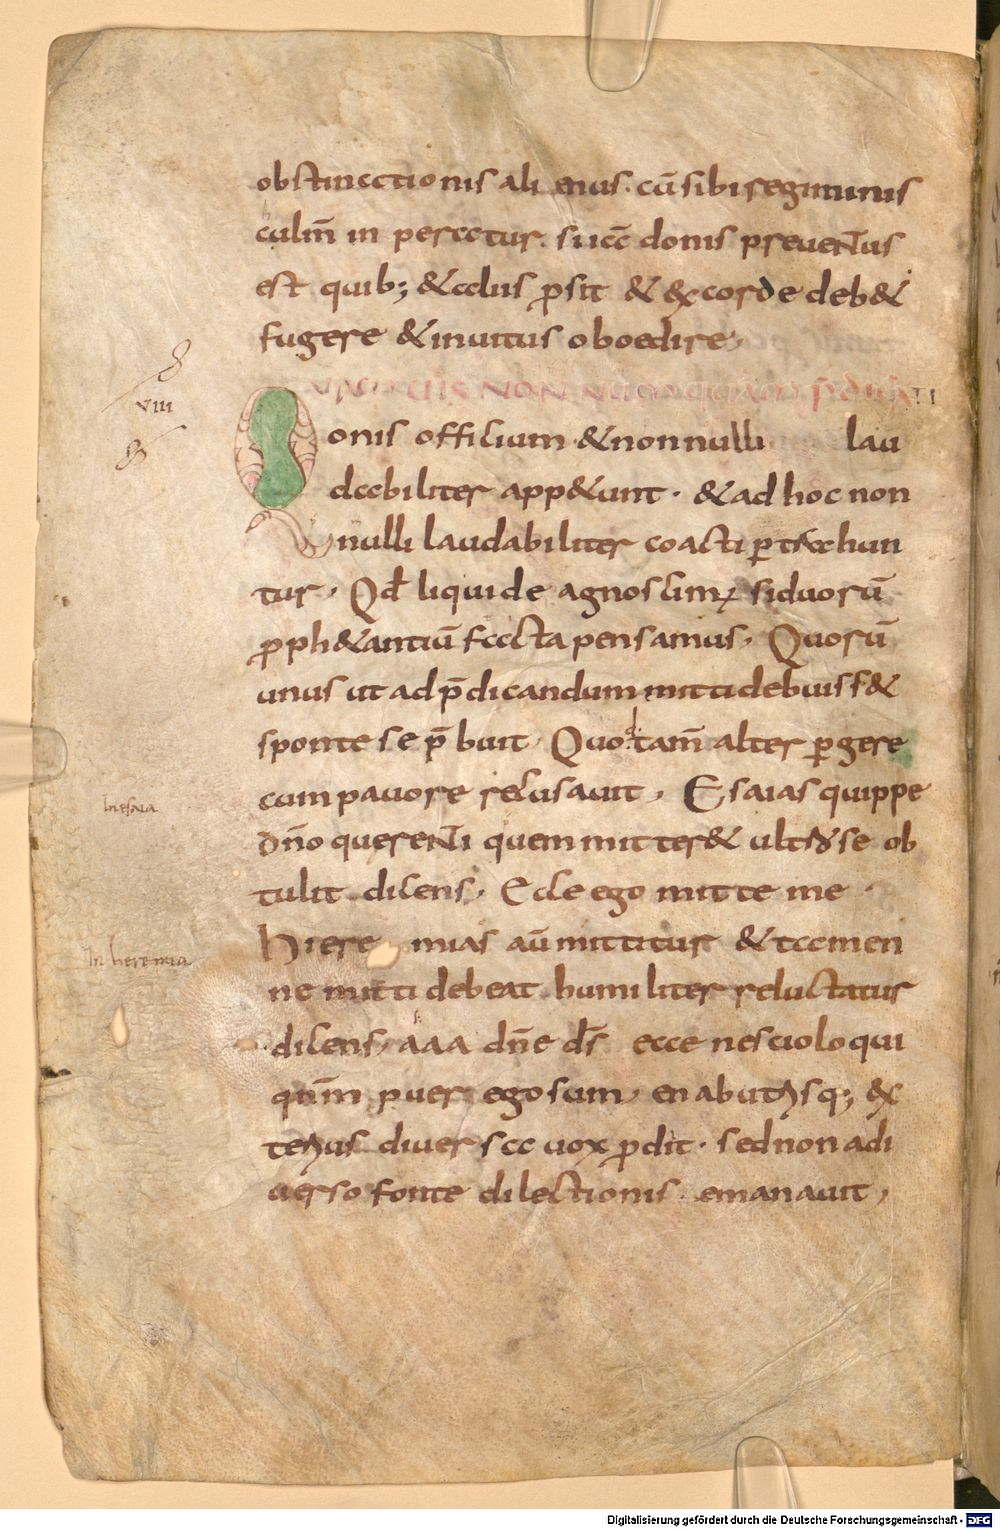 obstinationis alienus. cū sibi regiminis
culmñ inperatur. si iā donis preuentus
est quib; & alus p̱sit & ex corde deb&
fugere & inuitus oboedire,
NON NUMQUAM
VIII
onis officium & nonnulli lau
dabiliter app&unt. & ad hoc non
nulli laudabiliter coacti ꝑtrahun
tur. Qđ liquide agnoscimꝰ si duorū
ꝓph&antiū facta pensamus. Quorū
unus ut ad p̄dicandum mitti debuiss&
sponte se p̄buit. Quo tam̄ alter ꝑgere
cum pauore recusauit. Esaias quippe
In esaia
dn̄o querenti quem mitter& ultro se ob
tulit dicens. Ecce ego mitte me
Hieremias aū mittitur & tamen
In heremia
ne mitti debeat humiliter reluctatur
dicens, aaa dn̄e ds̄ ecce nescio loqui
qn̄m puer ego sum, en ab utrisq; ex
terius diuersa uox ꝓdit. sed non a di
uerso fonte dilectionis emanauit,
Digitalisierung gefördert durch die Deutsche Forschungsgemeinschaft - DFG